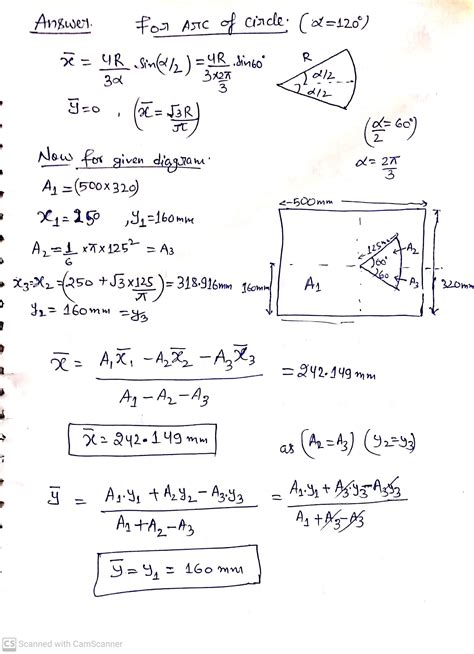 Answer. For Arc of circle. (α=120°)
x̄ = 4R/3α · sin(α/2) = 4R/(3×2π/3) · sin60°
R
α/2
α/2
ȳ=0 , (x̄ = √3R/π)
(α/2 = 60°)
α = 2π/3
Now for given diagram.
A₁ = (500×320)
x₁ = 250 , y₁=160mm
A₂ = 1/6 ×π×125² = A₃
x₃=x₂ = (250 + √3×125/π) = 318.916mm
y₂ = 160mm = y₃
500mm
125mm
A₂
60°
60
A₃
A₁
160mm
320mm
x̄ = (A₁x̄₁ - A₂x̄₂ - A₃x̄₃)/(A₁ - A₂ - A₃) = 242.149mm
x̄ = 242.149 mm
as (A₂=A₃) (y₂=y₃)
ȳ = (A₁.y₁ + A₂y₂ - A₃.y₃)/(A₁+A₂-A₃) = (A₁.y₁ + A₃.y₃ - A₃y₃)/(A₁ + A₃ - A₃)
ȳ = y₁ = 160 mm
CS Scanned with CamScanner